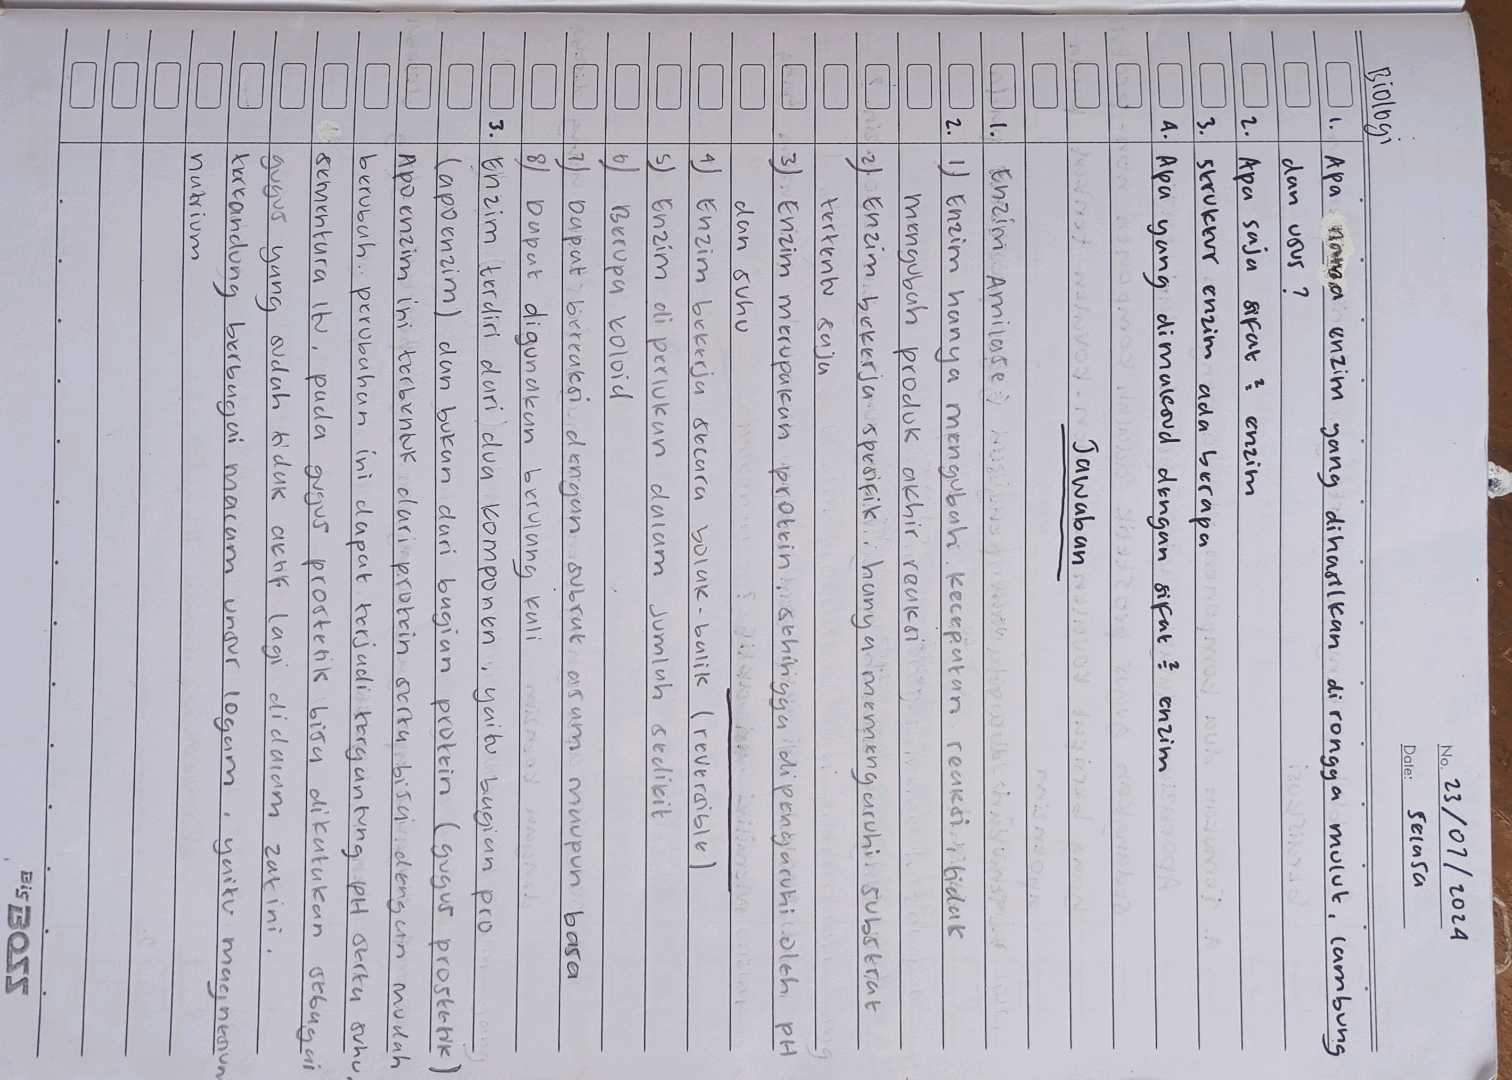 No. 23/07/2024
Date: Selasa
Biologi
1. Apa nama enzim yang dihasilkan di rongga mulut, lambung
dan usus?
2. Apa saja sifat² enzim
3. struktur enzim ada berapa
4. Apa yang dimaksud dengan sifat² enzim
Jawaban
1. Enzim Amilase
2. 1) Enzim hanya mengubah kecepatan reaksi, tidak
mengubah produk akhir reaksi
2) Enzim bekerja spesifik, hanya memengaruhi substrat
tertentu saja
3) Enzim merupakan protein, sehingga dipengaruhi oleh pH
dan suhu
4) Enzim bekerja secara bolak-balik (reversible)
5) Enzim di perlukan dalam jumlah sedikit
6) Berupa koloid
7) Dapat bereaksi dengan subrat asam maupun basa
8) Dapat digunakan berulang kali
3. Enzim terdiri dari dua komponen, yaitu bagian pro
(apoenzim) dan bukan dari bagian protein (gugus prostetik)
Apoenzim ini terbentuk dari protein serta bisa dengan mudah
berubah. perubahan ini dapat terjadi tergantung pH serta suhu.
sementara itu, pada gugus prostetik bisa dikatakan sebagai
gugus yang sudah tidak aktif lagi didaram zat ini.
terkandung berbagai macam unsur logam, yaitu magnesium
natrium
Bis BOSS